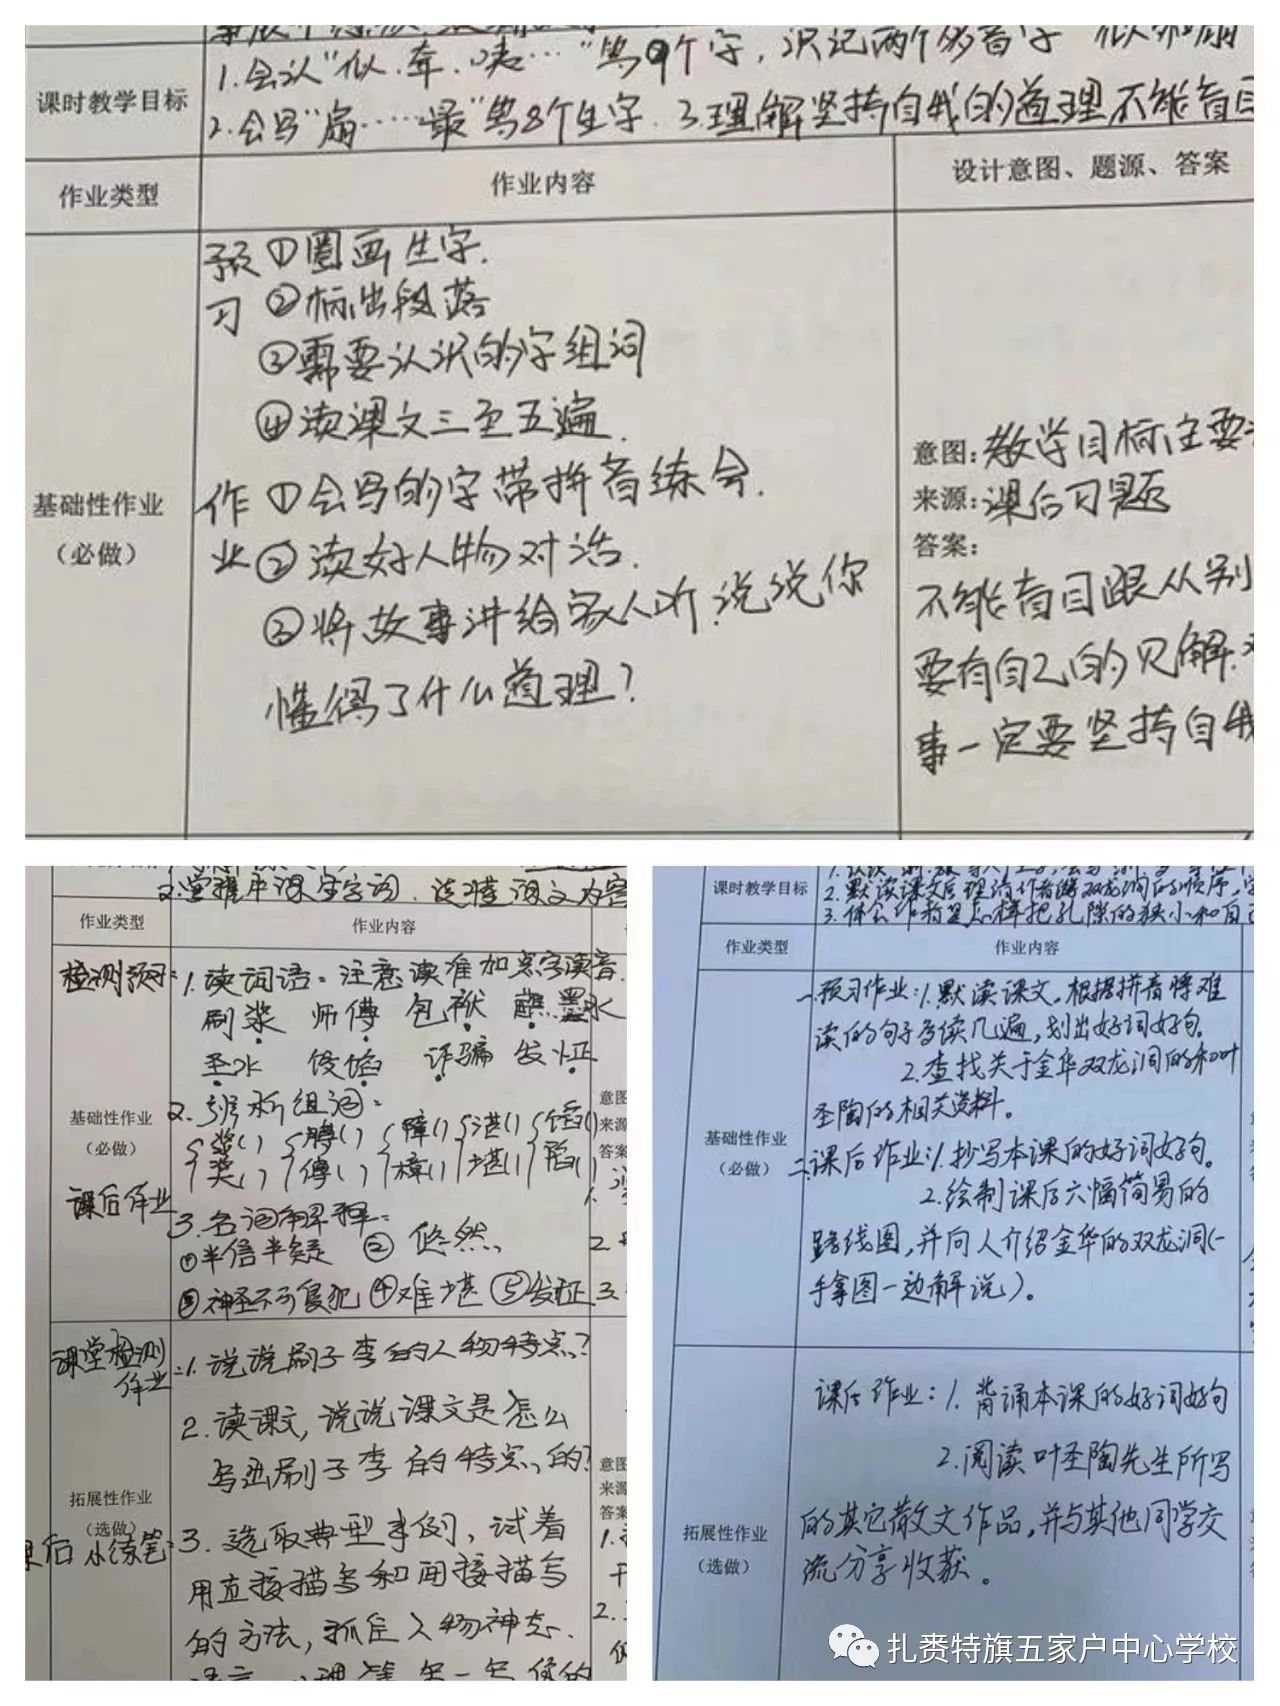 课时教学目标
1.会认"似.牵.咦…"等9个字,识记两个多音字
2.会写"扇……最"等8个生字.3.理解坚持自我的道理不能盲目
作业类型 作业内容 设计意图、题源、答案
基础性作业
(必做)
预 ①圈画生字.
习 ②标出段落
③需要认识的字组词
④读课文三至五遍.
作 ①会写的字带拼音练会.
业 ②读好人物对话.
③将故事讲给家人听,说说你
懂得了什么道理?
意图:教学目标主要
来源:课后习题
答案:
不能盲目跟从别
要有自己的见解.
事一定要坚持自我
2.掌握本课生字词.读懂课文内容
作业类型 作业内容
检测预习:1.读词语。注意读准加点字读音.
刷浆 师傅 包袱 蘸墨水
圣水 侵馅 诈骗 发怔
基础性作业
(必做)
2.辨析组词:
浆() 膊() 障() 湛() 馅()
奖() 傅() 樟() 堪() 陷()
意图
来源
答案
课后作业
3.名词解释:
①半信半疑 ②悠然
③神圣不可侵犯 ④难堪 ⑤发怔
课堂检测
作业
:1.说说刷子李的人物特点?
2.读课文,说说课文是怎么
写出刷子李的特点的?
拓展性作业
(选做)
意图
来源
答案
课后小练笔:3.选取典型事例,试着
用直接描写和间接描写
的方法,抓住人物神态.
课时教学目标
2.默读课文,理清作者游双龙洞的顺序,
3.体会作者是怎样把孔隙的狭小和自己
作业类型 作业内容
基础性作业
(必做)
一.预习作业:1.默读课文,根据拼音将难
读的句子多读几遍,划出好词好句。
2.查找关于金华双龙洞的和叶
圣陶的相关资料。
二.课后作业:1.抄写本课的好词好句。
2.绘制课后六幅简易的
路线图,并向人介绍金华的双龙洞(一
手拿图一边解说)。
拓展性作业
(选做)
课后作业:1.背诵本课的好词好句
2.阅读叶圣陶先生所写
的其它散文作品,并与其他同学交
流分享收获。
扎赉特旗五家户中心学校